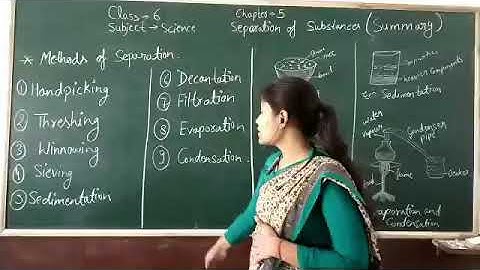 Class → 6
Subject → Science
Chapter → 5
Separation of Substances (Summary)
* Methods of Separation.
① Handpicking
② Threshing
③ Winnowing
④ Sieving
⑤ Sedimentation
⑥ Decantation
⑦ Filtration
⑧ Evaporation
⑨ Condensation
impurities
heavier components
Sedimentation
water
vapour
Condenser
pipe
flame
Beaker
Evaporation and
Condensation